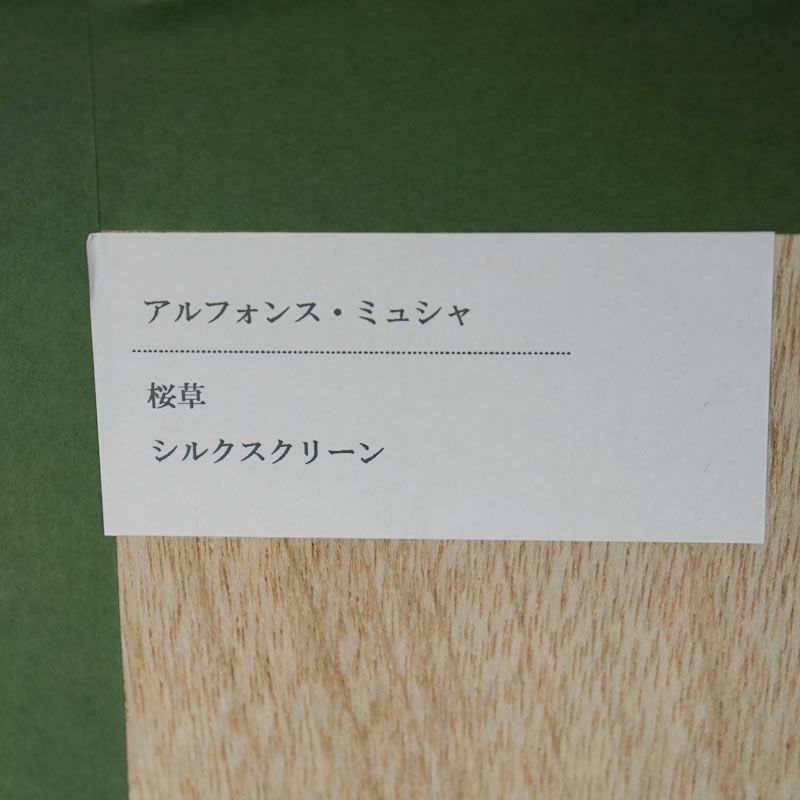 アルフォンス・ミュシャ
桜草
シルクスクリーン